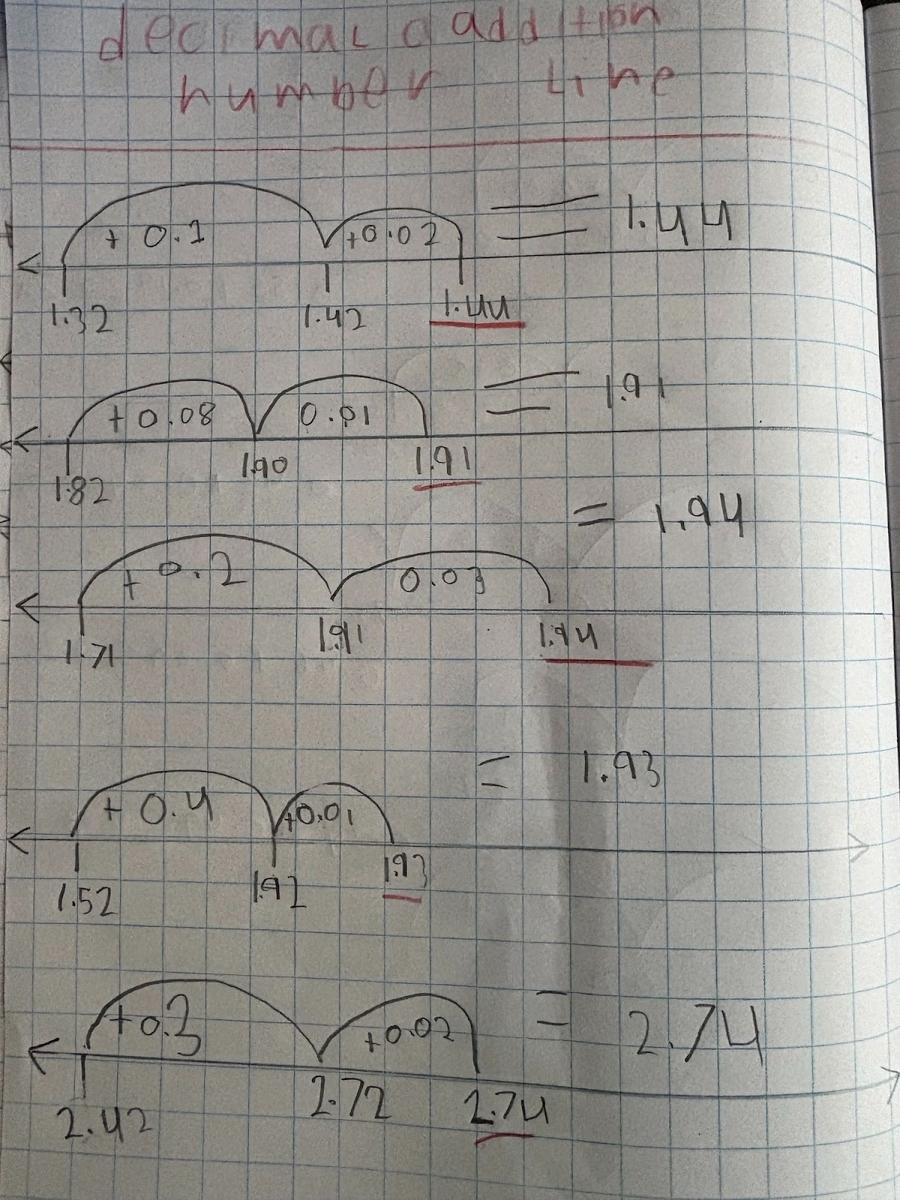 decimal addition
number line
+ 0.1 +0.02 = 1.44
1.32 1.42 1.44
+ 0.08 0.01 = 1.91
1.82 1.90 1.91
= 1.94
+ 0.2 0.03
1.71 1.91 1.94
= 1.93
+ 0.4 +0.01
1.52 1.92 1.93
+0.3 +0.02 = 2.74
2.42 2.72 2.74